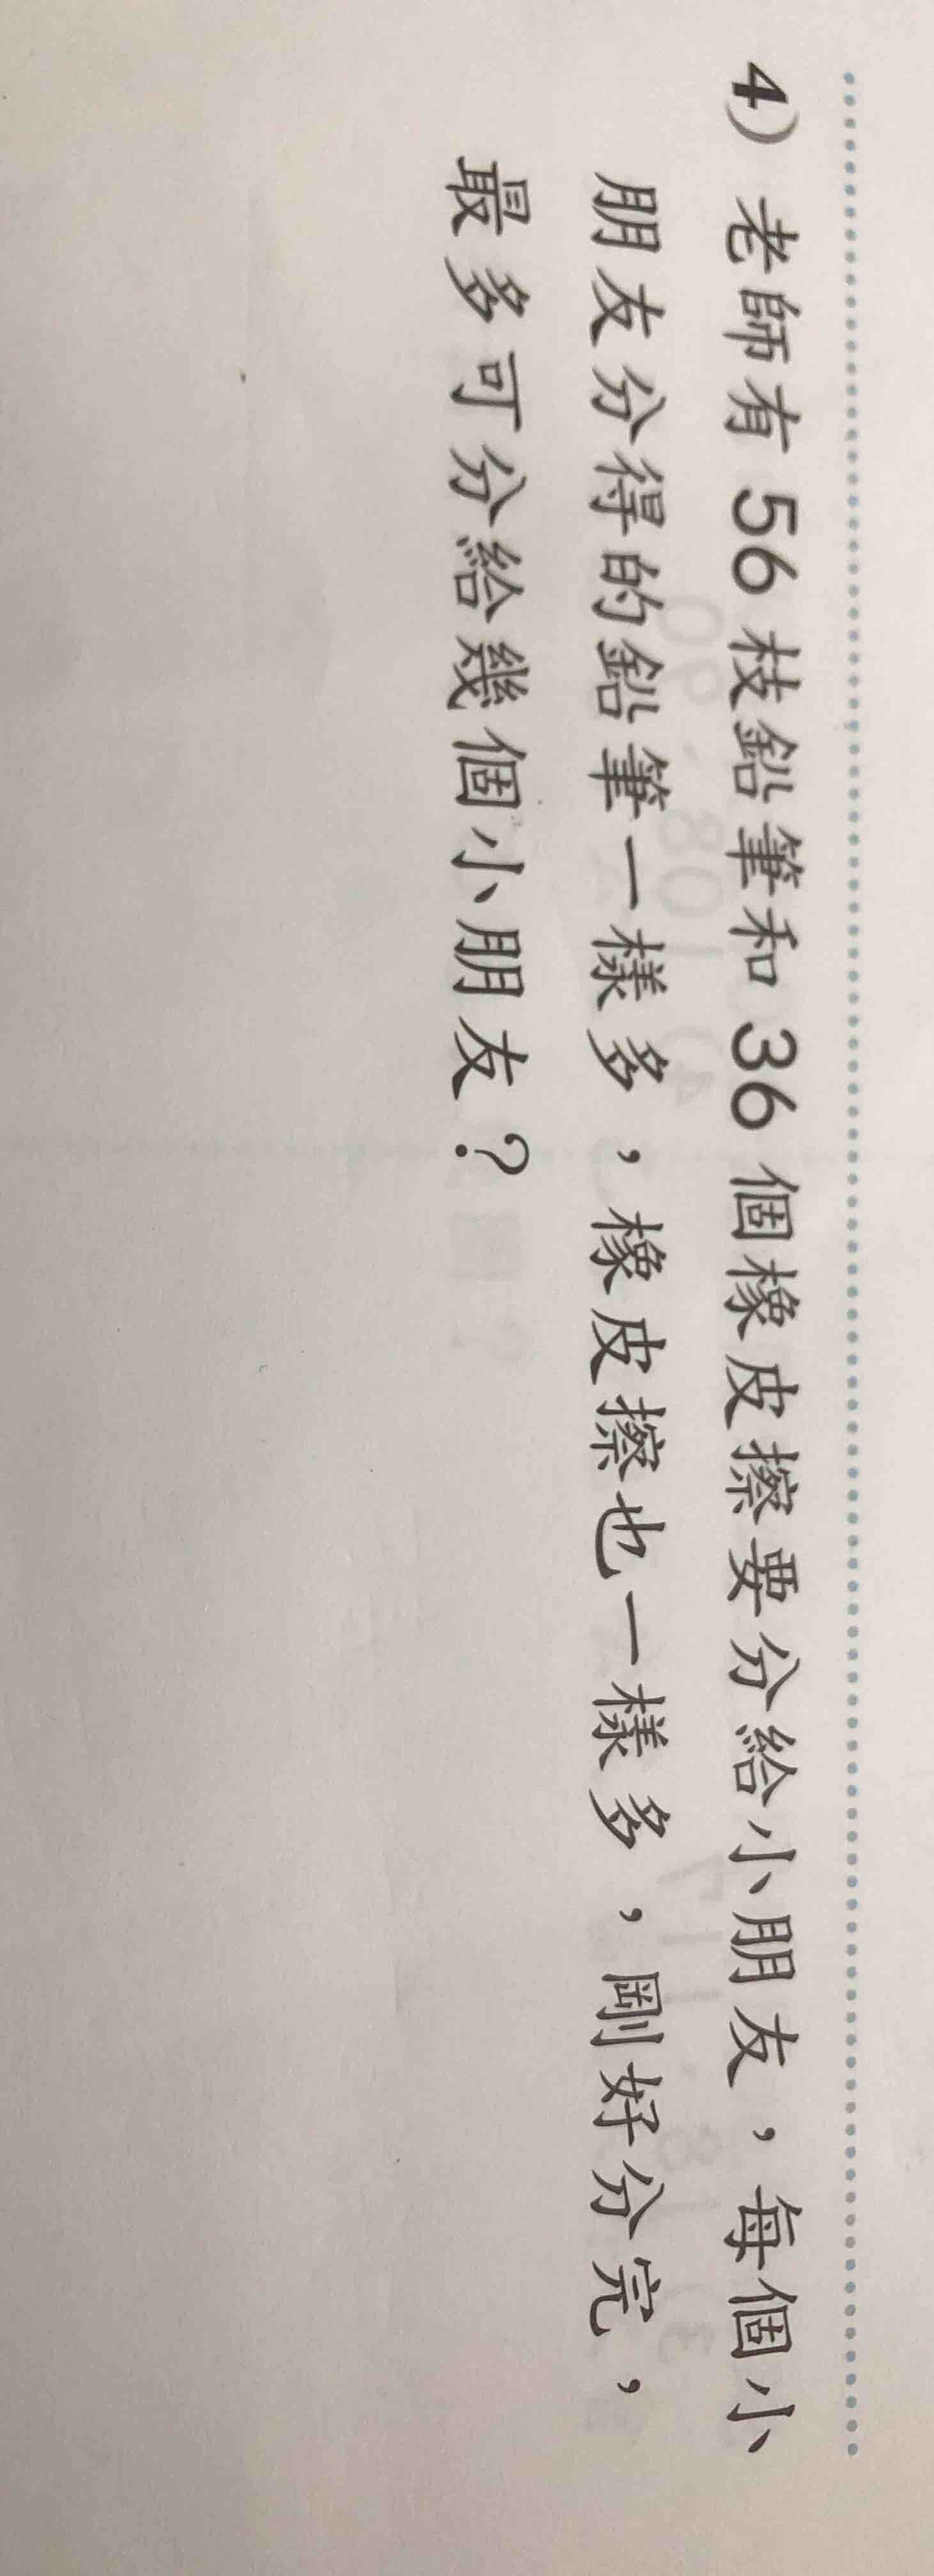 4) 老師有 56 枝鉛筆和 36 個橡皮擦要分給小朋友，每個小
朋友分得的鉛筆一樣多，橡皮擦也一樣多，剛好分完，
最多可分給幾個小朋友？